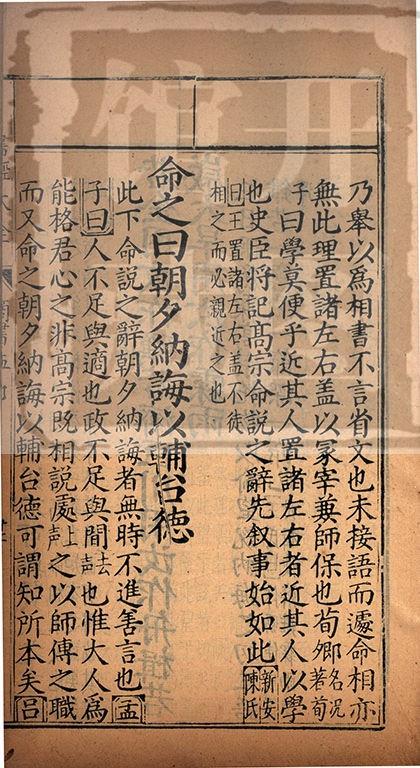 乃舉以爲相書不言省文也未接語而遽命相亦
無此理置諸左右盖以冢宰兼師保也荀卿名况著荀
子曰學莫便乎近其人置諸左右者近其人以學
也史臣将記髙宗命説之辭先叙事始如此新安陳氏
曰王置諸左右盖不徒
相之而必親近之也
命之曰朝夕納誨以輔台德
此下命説之辭朝夕納誨者無時不進善言也孟
子曰人不足與適也政不足與間去聲也惟大人爲
能格君心之非髙宗既相説處上聲之以師傅之職
而又命之朝夕納誨以輔台德可謂知所本矣吕